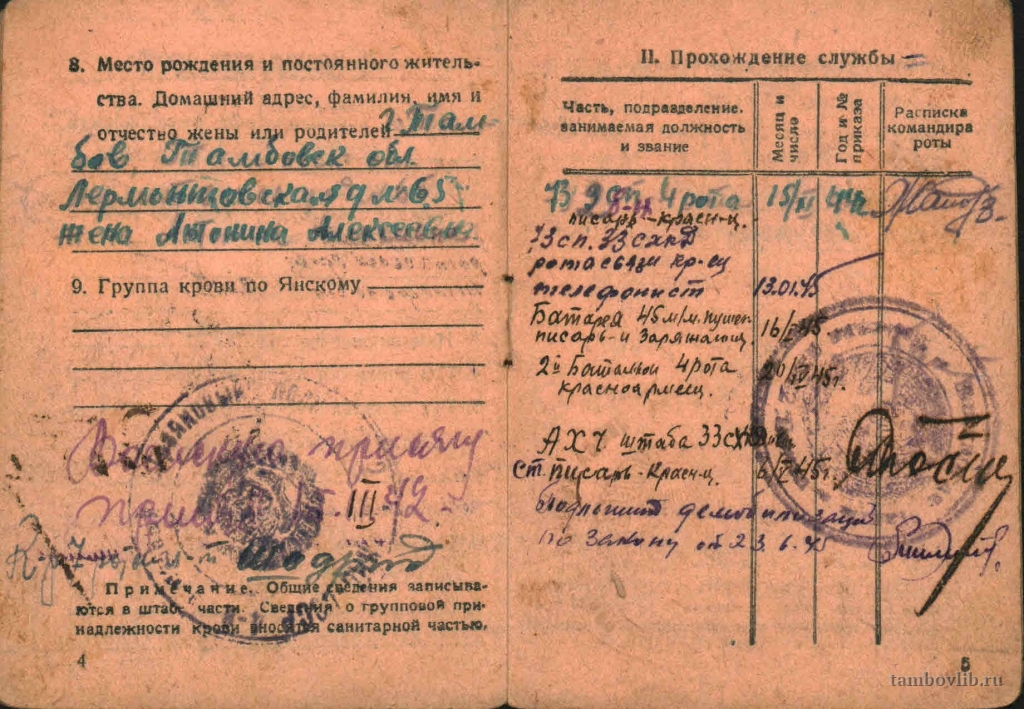 8. Место рождения и постоянного житель-
ства. Домашний адрес, фамилия, имя и
отчество жены или родителей г. Там-
бов, Тамбовск обл.
Лермонтовская д № 65
жена Антонина Алексеевна
9. Группа крови по Янскому
Военную присягу
принял 15. III - 42 -
Примечание. Общие сведения записыва-
ются в штабе части. Сведения о групповой при-
надлежности крови вносятся санитарной частью.
4
II. Прохождение службы
Часть, подразделение, занимаемая должность и звание
Месяц и число
Год и № приказа
Расписка командира роты
4 рота 15/ 44
писарь-красн-ц.
73 сп. 33 схкд
рота связи кр-ец
телефонист 13.01.45
Батарея 45 м/м. пушек
писарь-и заряжающ. 16/I-45.
2й Батальон 4 рота 20/IV 45г.
красноармеец.
АХЧ штаба 33
ст. писарь-красн-ц. 6/V-45г.
Подлежит демобилизации
по закону от 23.6.45
5
tambovlib.ru